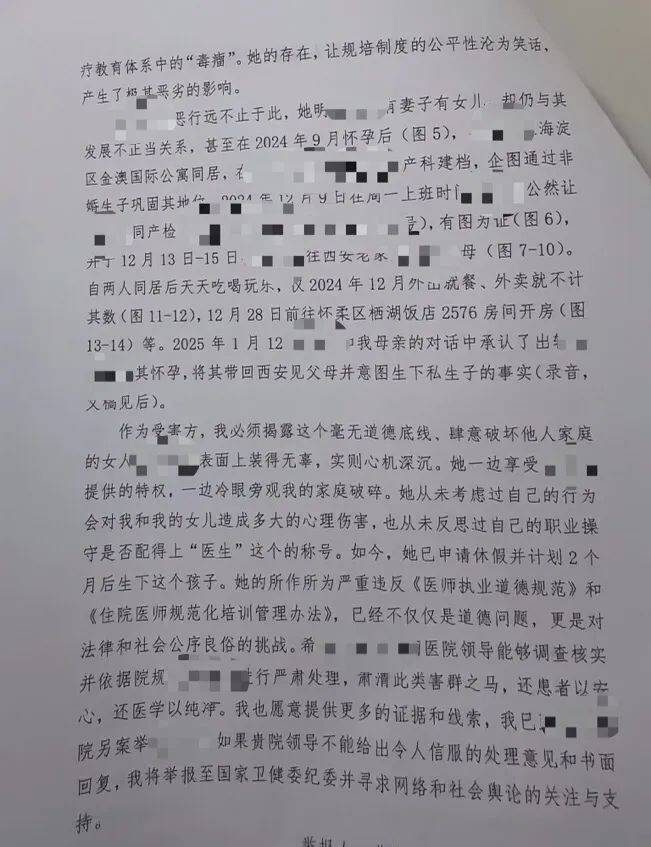 疗教育体系中的“毒瘤”。她的存在，让规培制度的公平性沦为笑话，
产生了极其恶劣的影响。
恶行远不止于此，她明 有妻子有女儿 却仍与其
发展不正当关系，甚至在 2024 年 9 月怀孕后（图 5）， 海淀
区金澳国际公寓同居，在 产科建档，企图通过非
婚生子巩固其地位 2024 年 12 月 9 日在周一上班时间 公然让
同产检 号），有图为证（图 6），
并于 12 月 13 日-15 日 往西安老家 母（图 7-10）。
自两人同居后天天吃喝玩乐，仅 2024 年 12 月外出就餐、外卖就不计
其数（图 11-12），12 月 28 日前往怀柔区栖湖饭店 2576 房间开房（图
13-14）等。2025 年 1 月 12 和我母亲的对话中承认了出轨
其怀孕，将其带回西安见父母并意图生下私生子的事实（录音，
文稿见后）。
作为受害方，我必须揭露这个毫无道德底线、肆意破坏他人家庭
的女人 表面上装得无辜，实则心机深沉。她一边享受
提供的特权，一边冷眼旁观我的家庭破碎。她从未考虑过自己的行为
会对我和我的女儿造成多大的心理伤害，也从未反思过自己的职业操
守是否配得上“医生”这个的称号。如今，她已申请休假并计划 2 个
月后生下这个孩子。她的所作所为严重违反《医师执业道德规范》和
《住院医师规范化培训管理办法》，已经不仅仅是道德问题，更是对
法律和社会公序良俗的挑战。希 医院领导能够调查核实
并依据院规 进行严肃处理，肃清此类害群之马，还患者以安
心，还医学以纯净。我也愿意提供更多的证据和线索，我已
院另案举 如果贵院领导不能给出令人信服的处理意见和书面
回复，我将举报至国家卫健委纪委并寻求网络和社会舆论的关注与支
持。
举报人